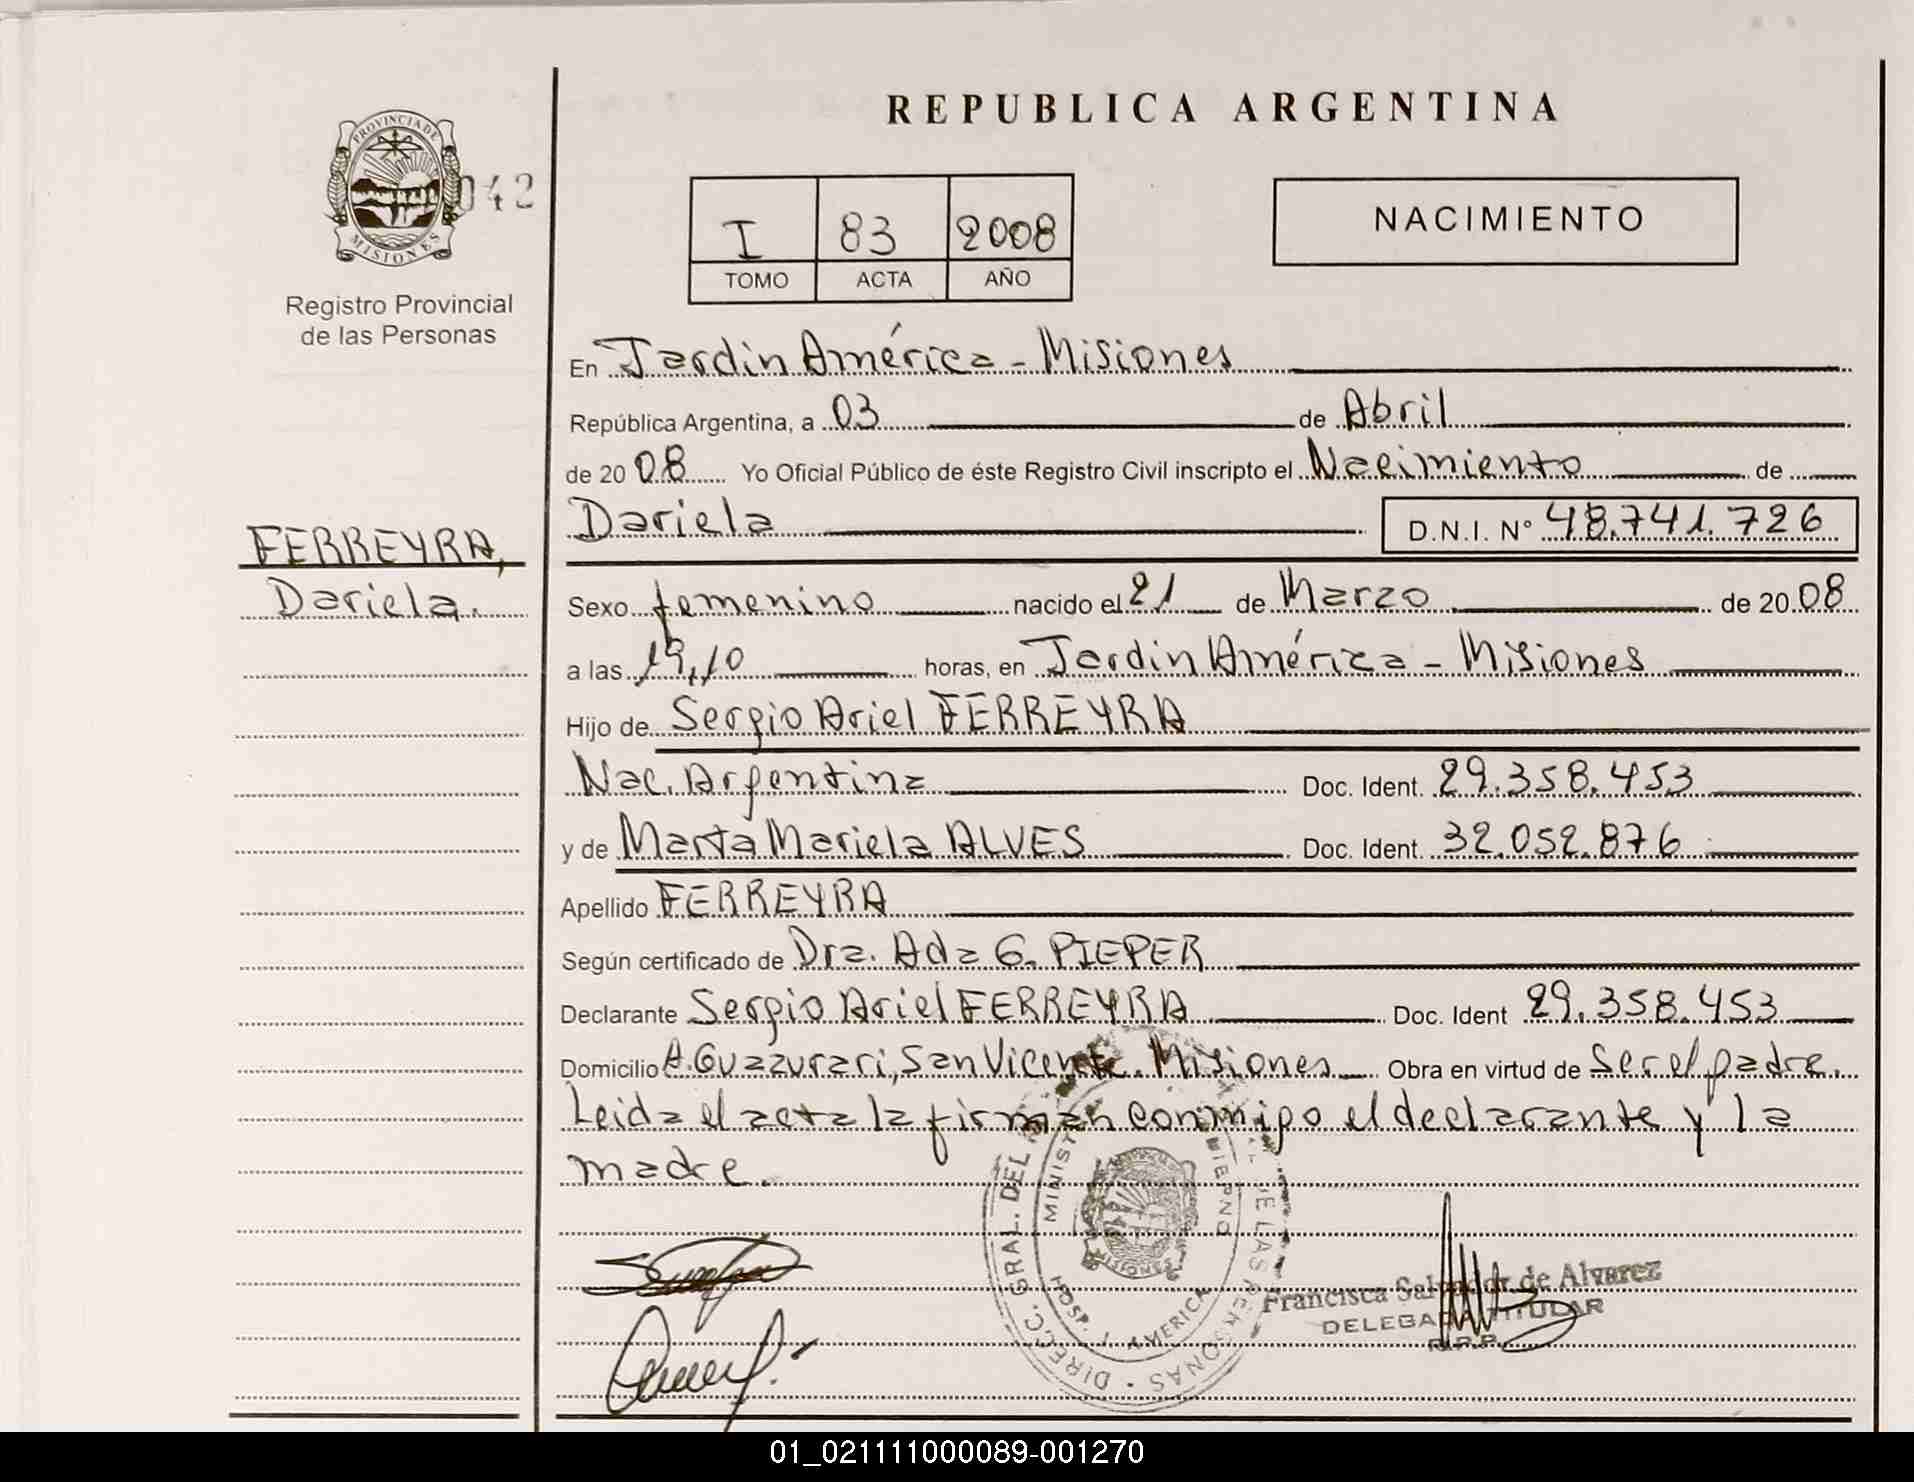 REPUBLICA ARGENTINA
PROVINCIA DE
MISIONES
042
Registro Provincial
de las Personas
I 83 2008
TOMO ACTA AÑO
NACIMIENTO
En Jardin América - Misiones
República Argentina, a 03 de Abril
de 20 08 Yo Oficial Público de éste Registro Civil inscripto el Nacimiento de
Dariela D.N.I. N° 48.741.726
FERREYRA,
Dariela.
Sexo femenino nacido el 21 de Marzo de 20 08
a las 19,10 horas, en Jardin América - Misiones
Hijo de Sergio Ariel FERREYRA
Nac. Argentina Doc. Ident. 29.358.453
y de Marta Mariela ALVES Doc. Ident. 32.052.876
Apellido FERREYRA
Según certificado de Dra. Ada G. PIEPER
Declarante Sergio Ariel FERREYRA Doc. Ident 29.358.453
Domicilio A. Guazurari, San Vicente. Misiones Obra en virtud de Ser el padre.
Leida el acta la firman conmigo el declarante y la
madre.
DIRECC. GRAL. DEL DE LAS PERSONAS
HOSP. J. AMERICA
MISIONES
Francisca Salvador de Alvarez
DELEGADA TITULAR
R.P.P.
01_021111000089-001270